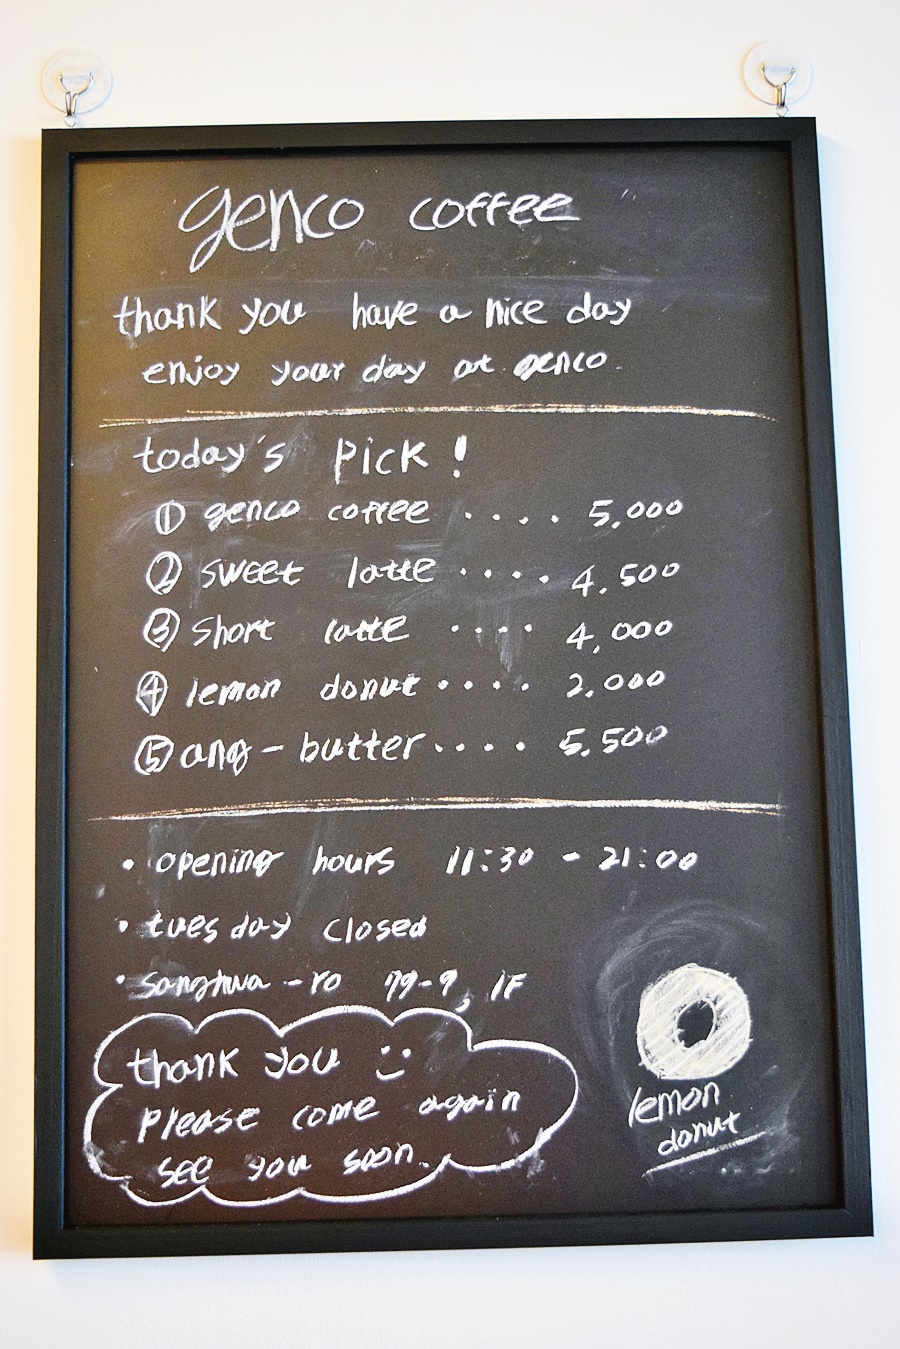 genco coffee
thank you have a nice day
enjoy your day at genco.
today's Pick !
① genco coffee .... 5,000
② sweet latte .... 4,500
③ short latte .... 4,000
④ lemon donut .... 2,000
⑤ ang-butter .... 5,500
• opening hours 11:30 - 21:00
• tuesday closed
• sanghwa-ro 79-9, 1F
thank you :)
Please come again
see you soon.
lemon
donut